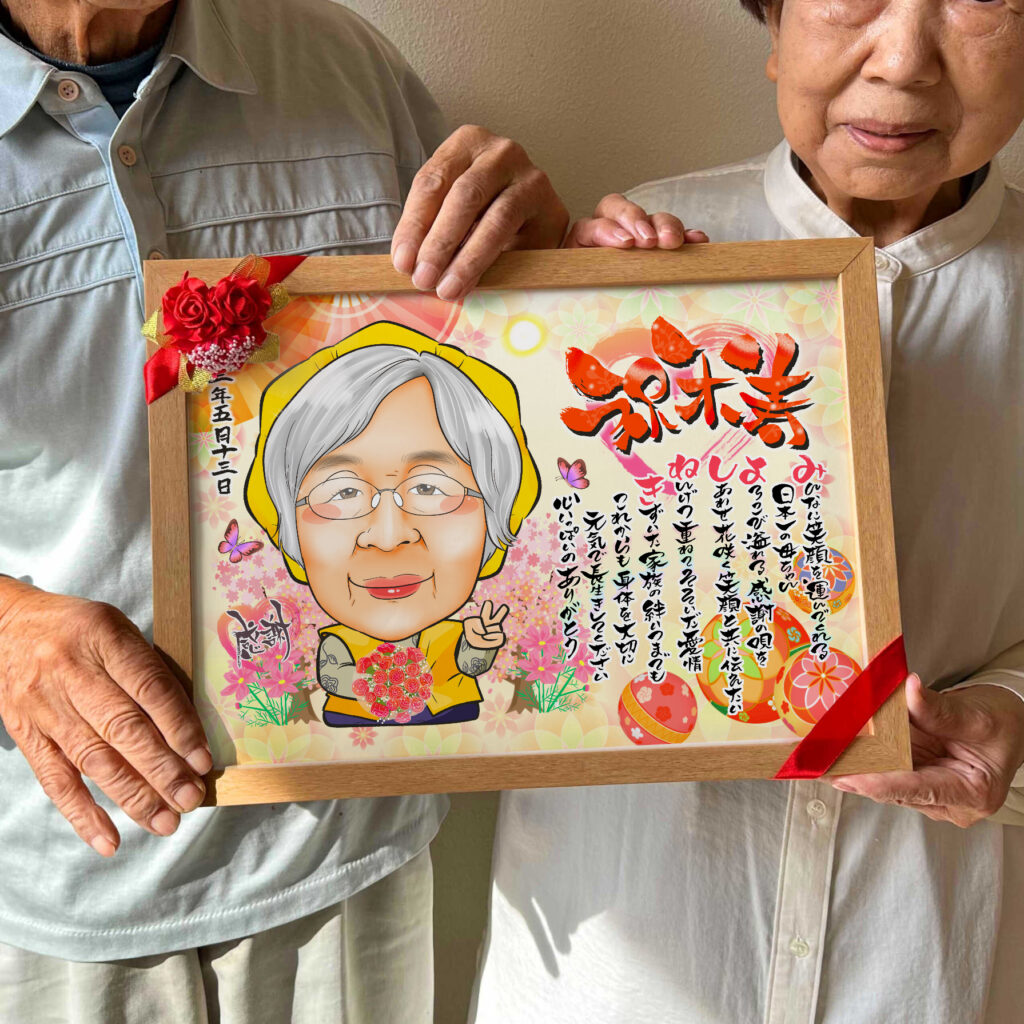 祝米寿
みんなに笑顔を運んでくれる
日本一の母ちゃん
よろこび溢れる感謝の唄を
しあわせ花咲く笑顔と共に伝えたい
ねんげつ重ねてそそいだ愛情
きずいた家族の絆いつまでも
これからも身体を大切に
元気で長生きしてください
心いっぱいのありがとう
年五月十三日
感謝